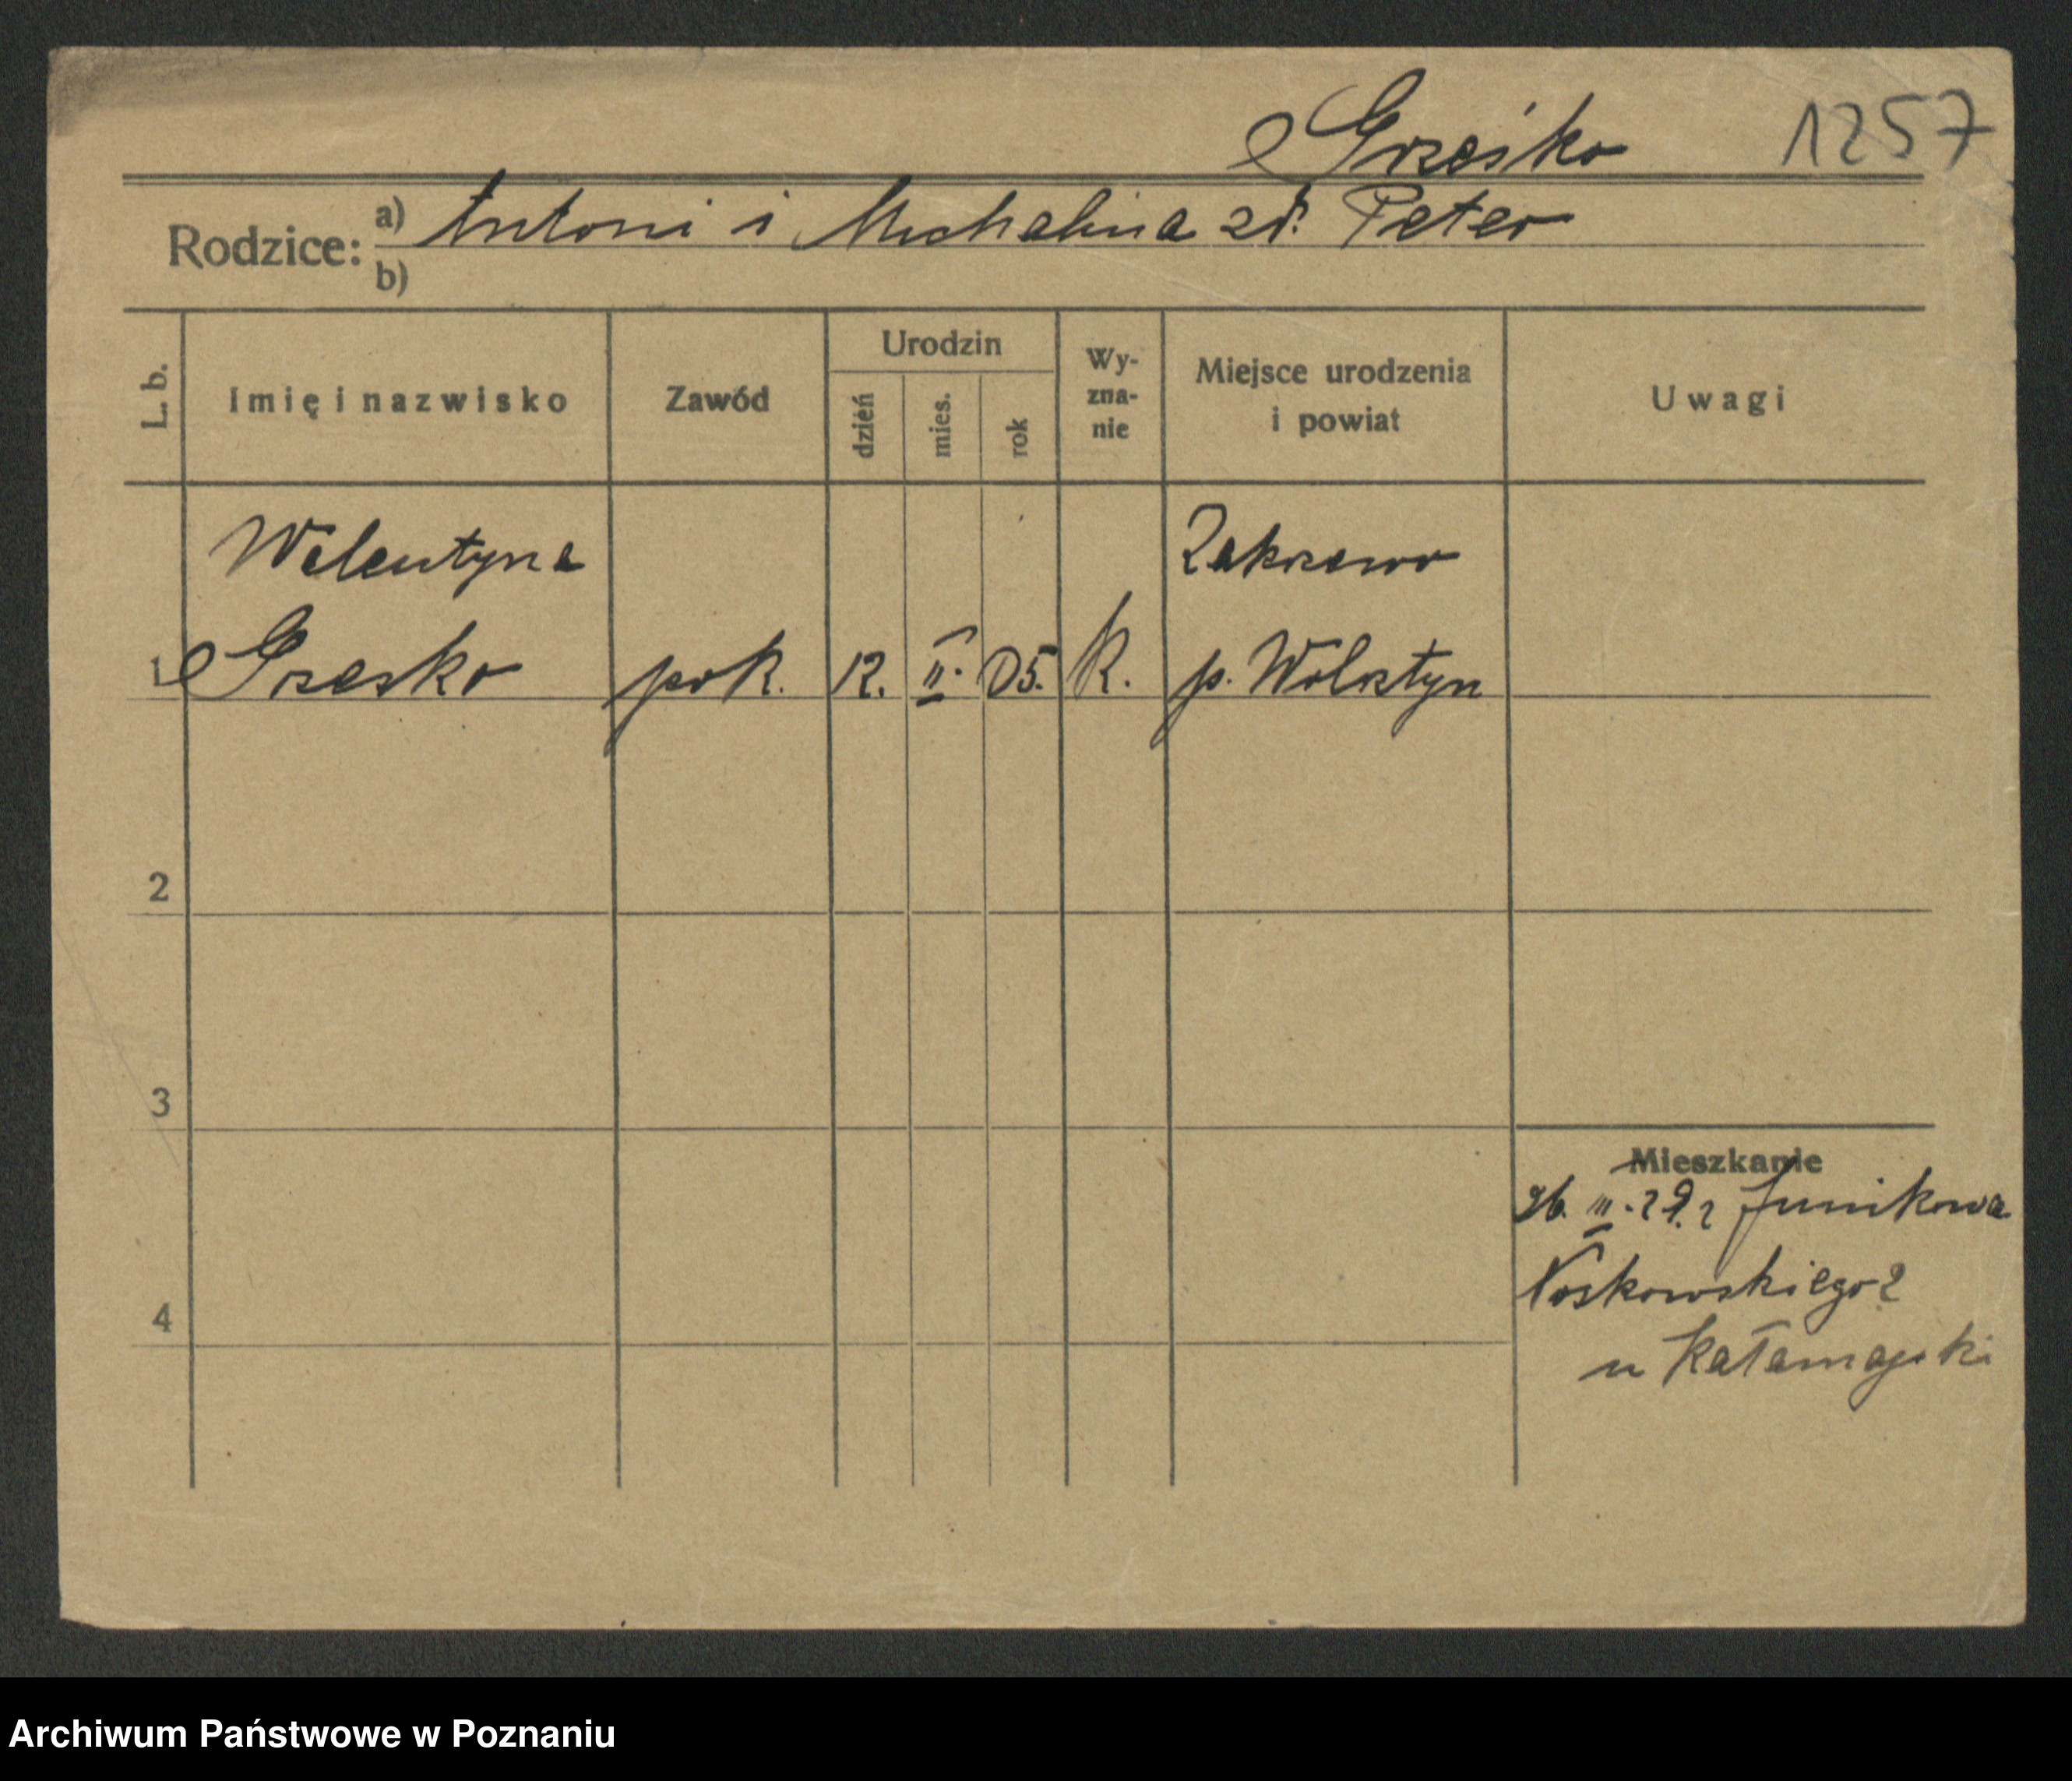 Grześko 1257
Rodzice: a) Antoni i Michalina zd. Peter
b)
L. b.
Imię i nazwisko
Zawód
Urodzin
dzień
mies.
rok
Wy-
zna-
nie
Miejsce urodzenia
i powiat
Uwagi
Walentyna
Zakrzewo
1 Grzesko pok. 12. II. 05. k. p. Wolsztyn
2
3
Mieszkanie
26. III. 29. z Junikowa
Noskowskiego 2
4
u Katamajski
Archiwum Państwowe w Poznaniu